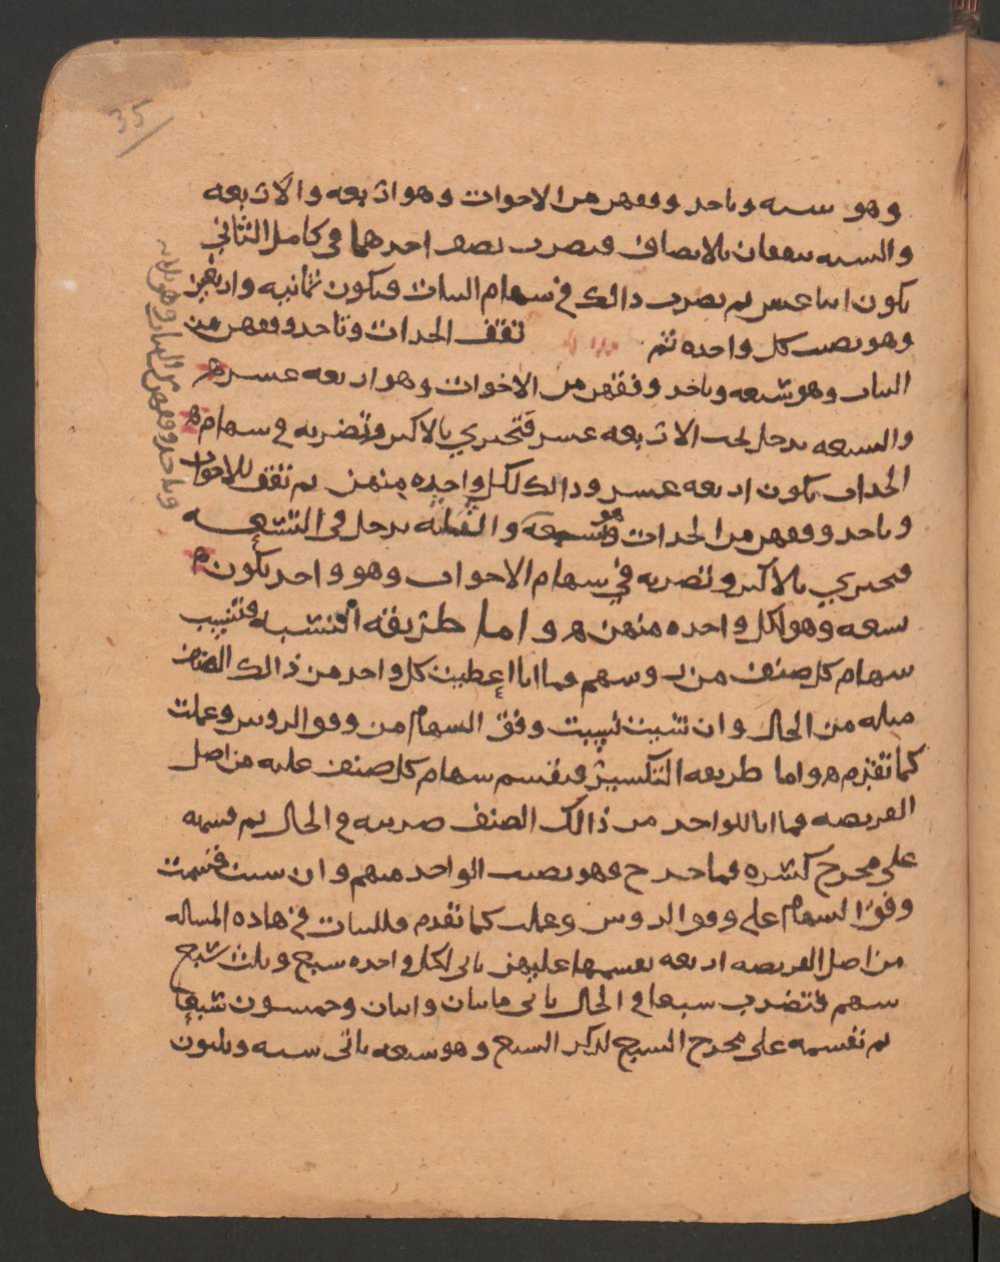 35
وهو سته وتاخد ووفقهن من الاخوات وهو اربعه والاربعه
والسته يتفقان بالانصاف فتضرب نصف احدهما في كامل الثاني
يكون اثنا عشر ثم تضرب ذالك في سهام البنات فيكون ثمانيه واربعين
وهو نصيب كل واحده ثم تقف الجدات وتاخد ووفقهن من
البنات وهو تسعه وتاخد ووفقهن من الاخوات وهو اربعه عشر
والسبعه تدخل تحت الاربعه عشر فتجتزي بالاكبر وتضربه في سهام
الجدات يكون اربعه عشر وذالك لكل واحده منهن ثم تقف للاخوات
وتاخد ووفقهن من الجدات وهو تسعه والثلثه تدخل في التسعه
فتجتزي بالاكبر وتضربه في سهام الاخوات وهو واحد يكون
تسعه وهو لكل واحده منهن واما طريقة النسبه فتنسب
سهام كل صنف من روسهم فما اتا اعطيت كل واحد من ذالك الصنف
مثله من الحال وان شيت نسبت وفق السهام من وفق الروس وعملت
كما تقدم واما طريقه التكسير فتقسم سهام كل صنف عليه من اصل
الفريضه فما اتا للواحد من ذالك الصنف ضربته في الحال ثم قسمته
على مخرج كسره فما خرج فهو نصيب الواحد منهم وان شيت قسمت
وفق السهام على وفق الروس وعملت كما تقدم فللبنات في هاذه المساله
من اصل الفريضه اربعه تقسمها عليهن ياتي لكل واحده سبع وثلث سبع
سهم فتضرب سبعا في الحال ياتي مايتان واثنان وخمسون سبعا
ثم تقسمه على مخرج السبع لذكر السبع وهو سبعه ياتي سته وثلثون
وتاخد ووفقهن من البنات وهو ثلاثه